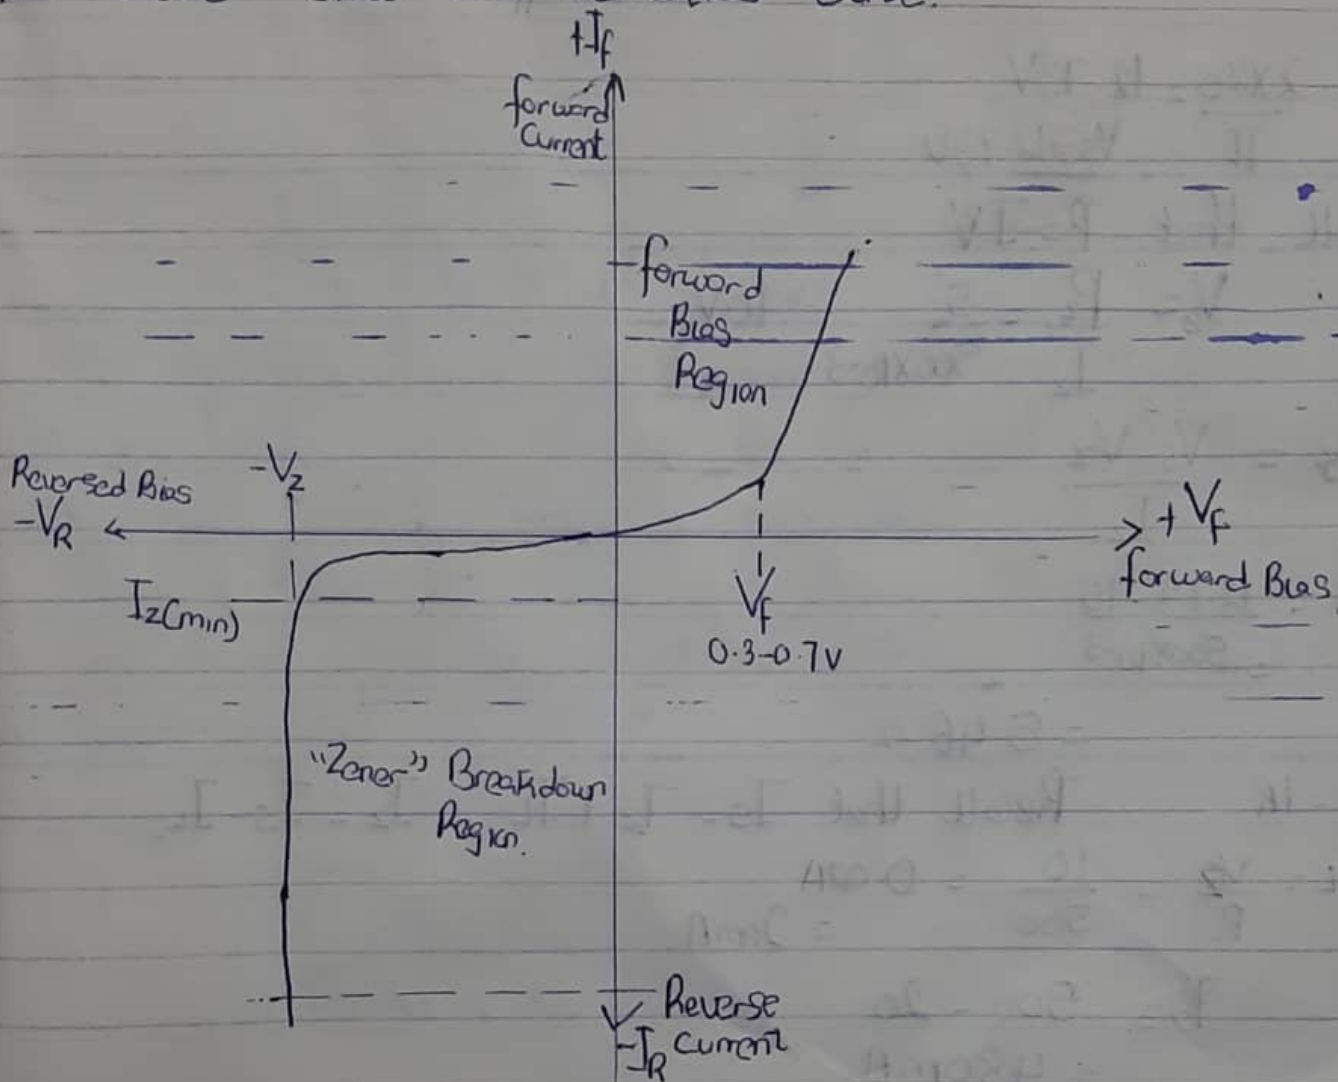 +I_f
forward
Current
forward
Bias
Region
Reversed Bias
-V_z
-V_R
+ V_f
forward Bias
I_z(min)
V_f
0.3-0.7V
"Zener" Breakdown
Region.
Reverse
-I_R Current